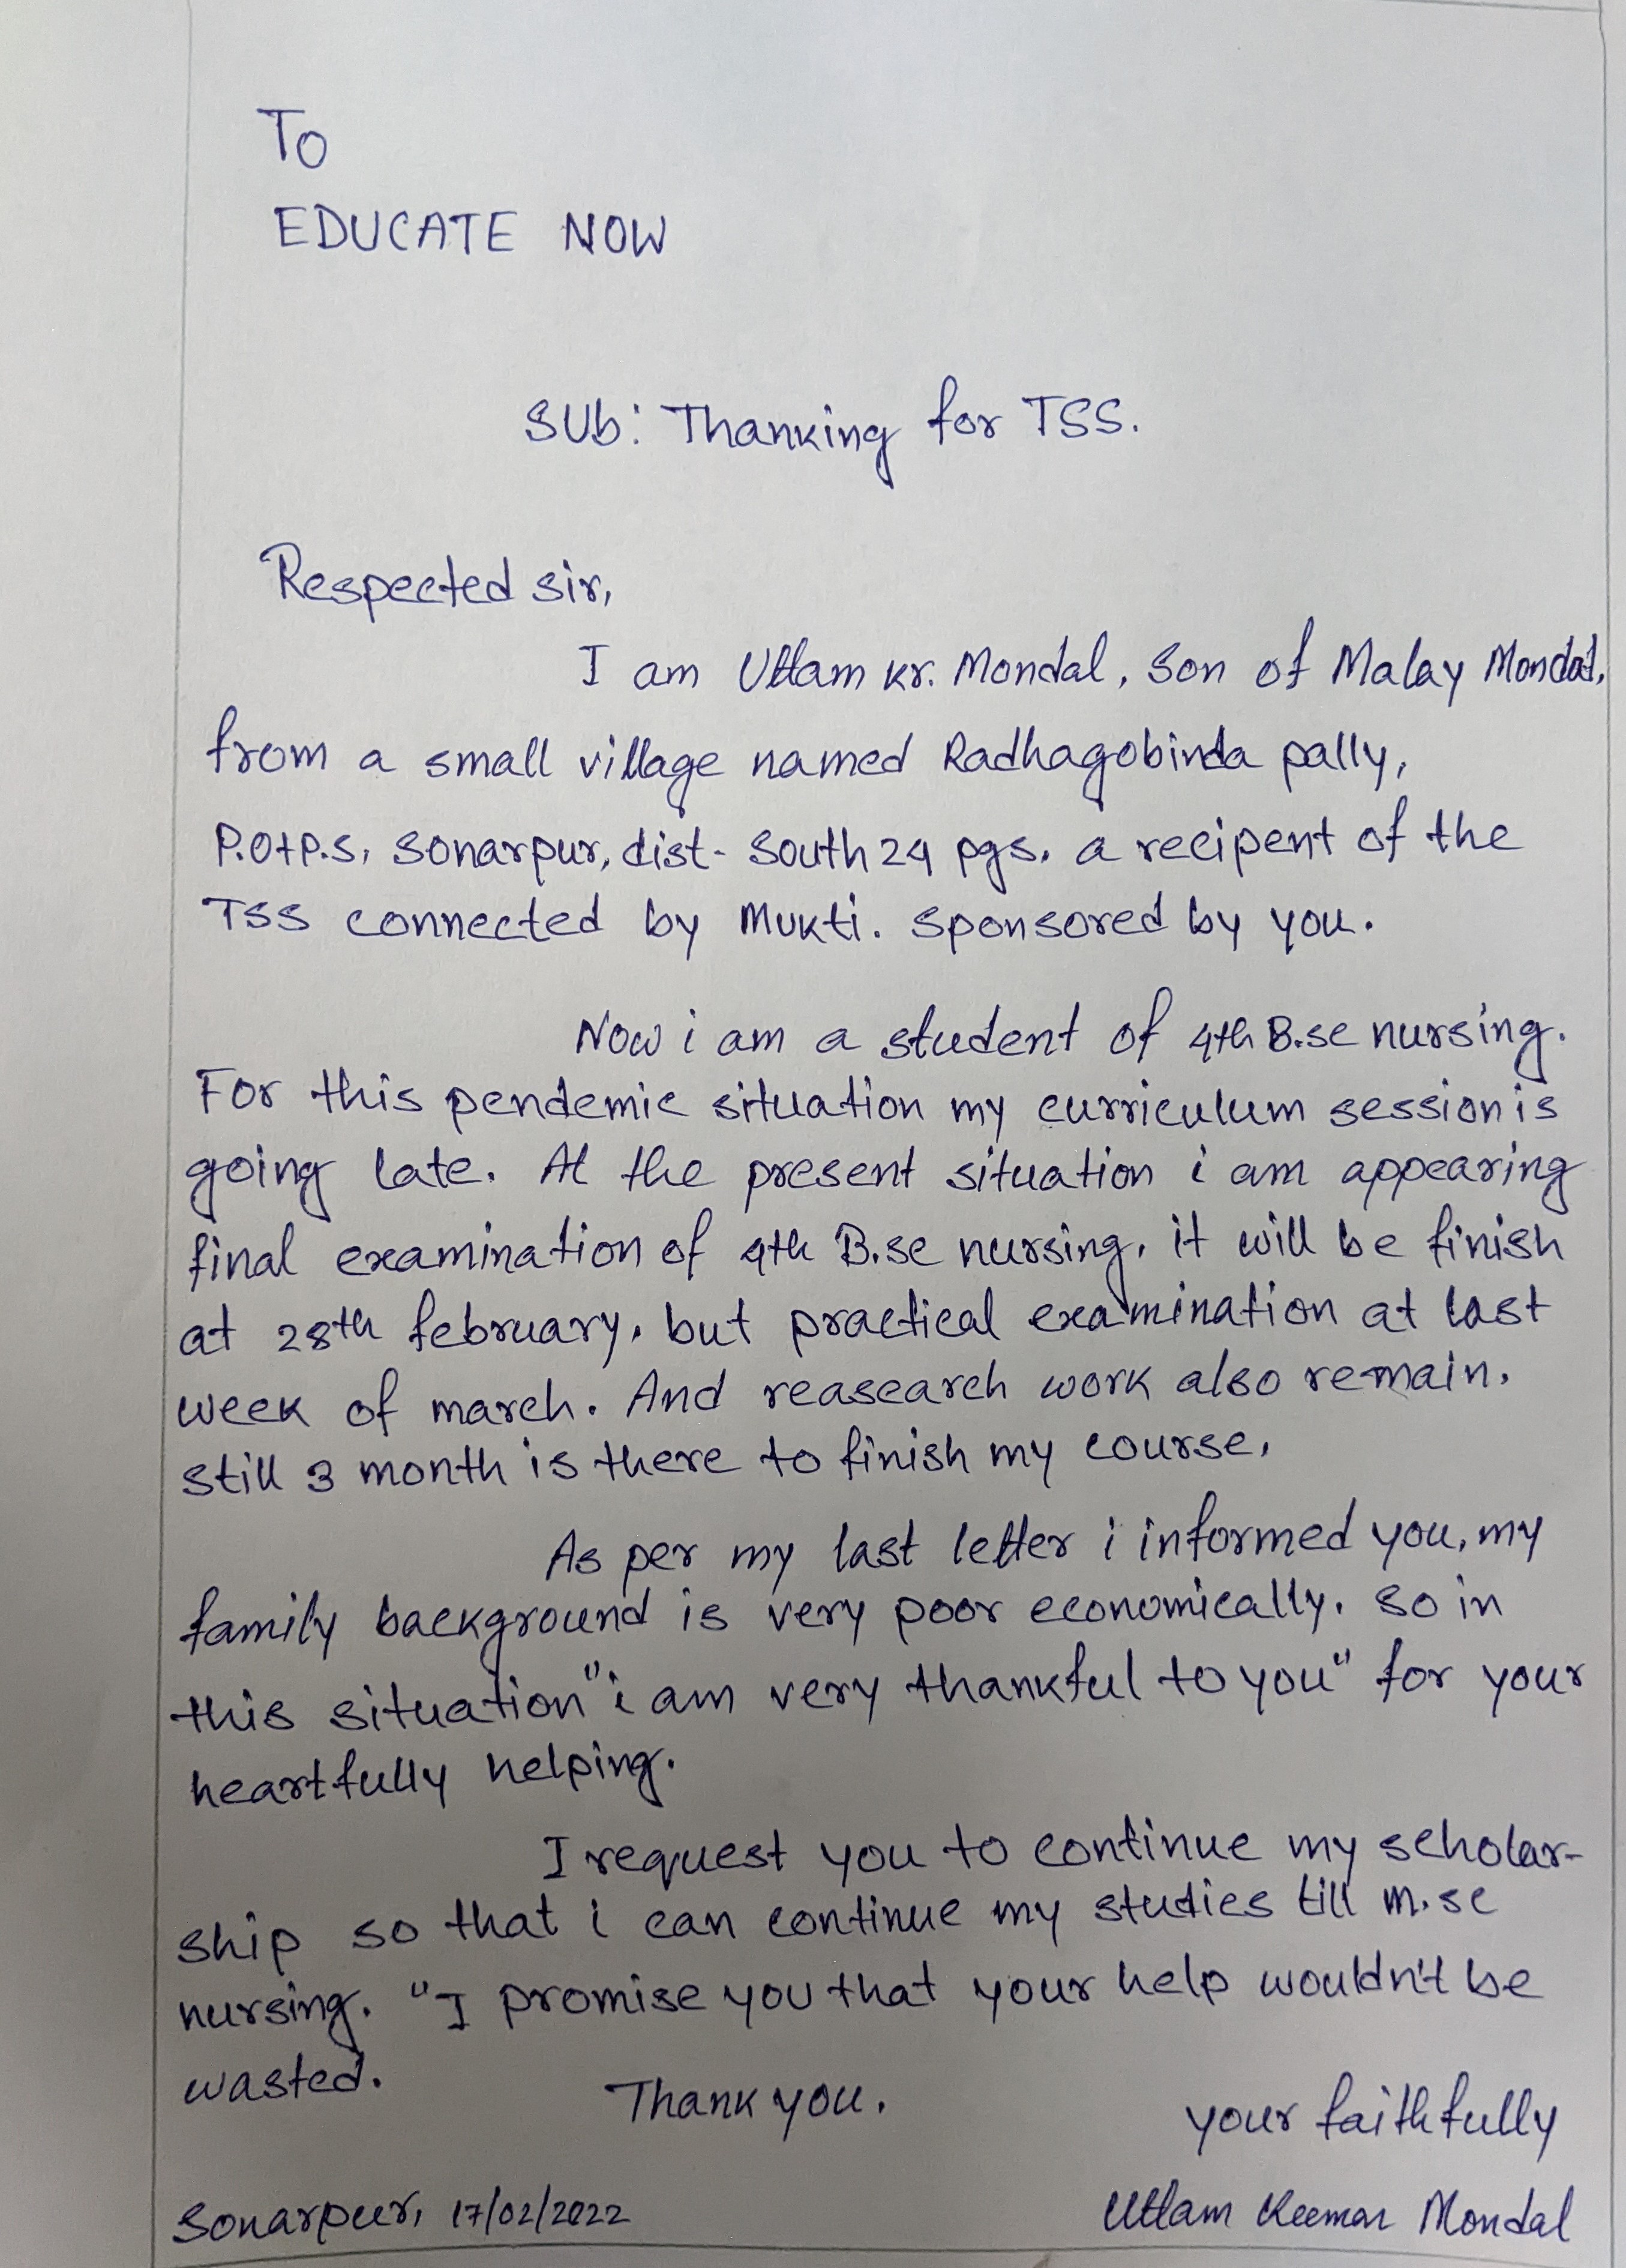 To
EDUCATE NOW
SUb: Thanking for TSS.
Respected sir,
I am Uttam kr. Mondal, Son of Malay Mondal,
from a small village named Radhagobinda pally,
P.O+P.S, Sonarpur, dist- South 24 pgs. a recipent of the
TSS connected by Mukti. sponsored by you.
Now i am a student of 4th B.sc nursing.
For this pendemic situation my curriculum session is
going late. At the present situation i am appearing
final examination of 4th B.sc nursing, it will be finish
at 28th february, but practical examination at last
week of march. And reasearch work also remain.
still 3 month is there to finish my course,
As per my last letter i informed you, my
family background is very poor economically. so in
this situation "i am very thankful to you" for your
heartfully helping.
I request you to continue my scholar-
ship so that i can continue my studies till M.sc
nursing. "I promise you that your help wouldn't be
wasted.
Thank you.
your faithfully
Sonarpur, 17/02/2022
Uttam Kumar Mondal